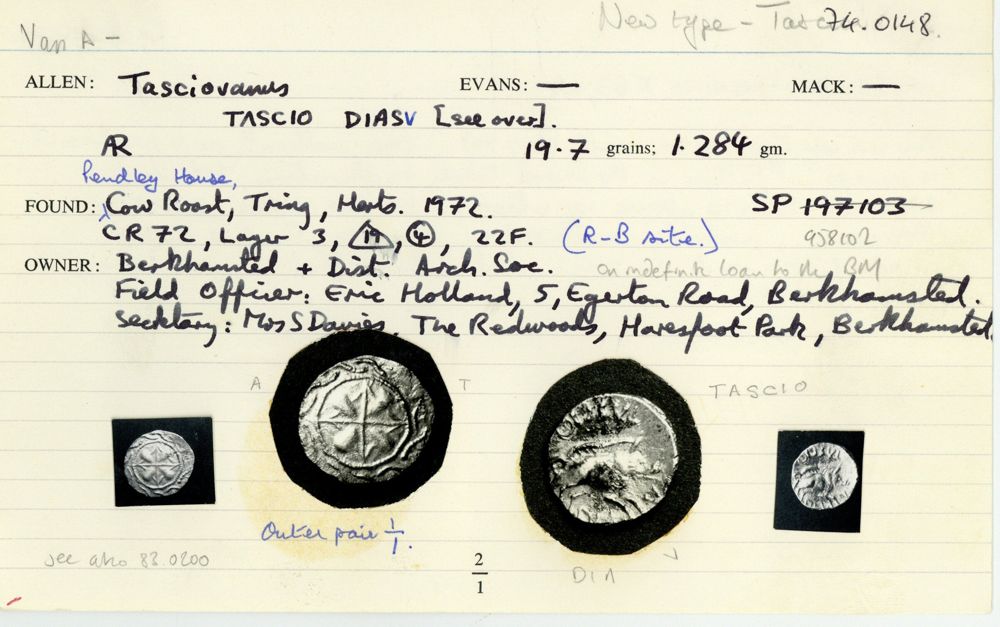 New type - Tascio 74.0148.
Van A -
ALLEN: Tasciovanus EVANS: — MACK: —
TASCIO DIASV [see over].
AR 19.7 grains; 1.284 gm.
Pendley House,
FOUND: Cow Roast, Tring, Herts. 1972. SP 197103
CR 72, Layer 3, 19, 4, 22F. (R-B site.) 958102
OWNER: Berkhamsted + Dist. Arch. Soc. on indefinite loan to the BM
Field Officer: Eric Holland, 5, Egerton Road, Berkhamsted.
Secretary: Mrs S Davies, The Redwoods, Haresfoot Park, Berkhamsted
A T TASCIO
Outer pair 1/1.
see also 83.0200
2/1
DIA V